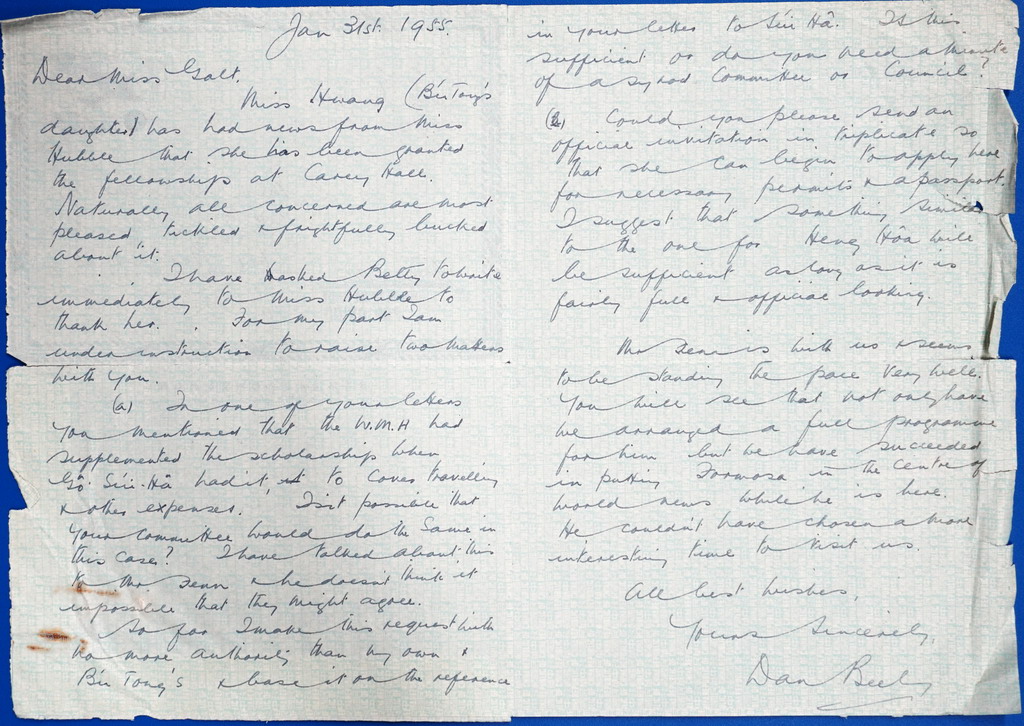 Jan 31st. 1955.
Dear Miss Galt.
Miss Hwang (Bu Tong's
daughter) has had news from Miss
Hubble that she has been granted
the fellowship at Carey Hall.
Naturally all concerned are most
pleased tickled & frightfully bucked
about it.
I have asked Betty to write
immediately to Miss Hubble to
thank her. For my part I am
under instruction to raise two matters
with you.
(a) In one of your letters
you mentioned that the W.M.H had
supplemented the scholarship when
Gô Siù-Hâ had it, to cover travelling
& other expenses. Is it possible that
your committee would do the same in
this case? I have talked about this
to Mr Fenn & he doesn't think it
impossible that they might agree.
So far I make this request with
no more authority than my own &
Bu Tong's & base it on the reference
in your letter to Siù Hâ. Is this
sufficient or do you need a minute
of a synod Committee or Council?
(b) Could you please send an
official invitation in triplicate so
that she can begin to apply here
for necessary permits & a passport.
I suggest that something similar
to the one for Hôa will
be sufficient as long as it is
fairly full & official looking.
Mr Fenn is with us & seems
to be standing the pace very well.
You will see that not only have
we arranged a full programme
for him but we have succeeded
in putting Formosa in the centre of
world news while he is here.
He couldn't have chosen a more
interesting time to visit us.
All best wishes,
Yours Sincerely,
Dan Beeby